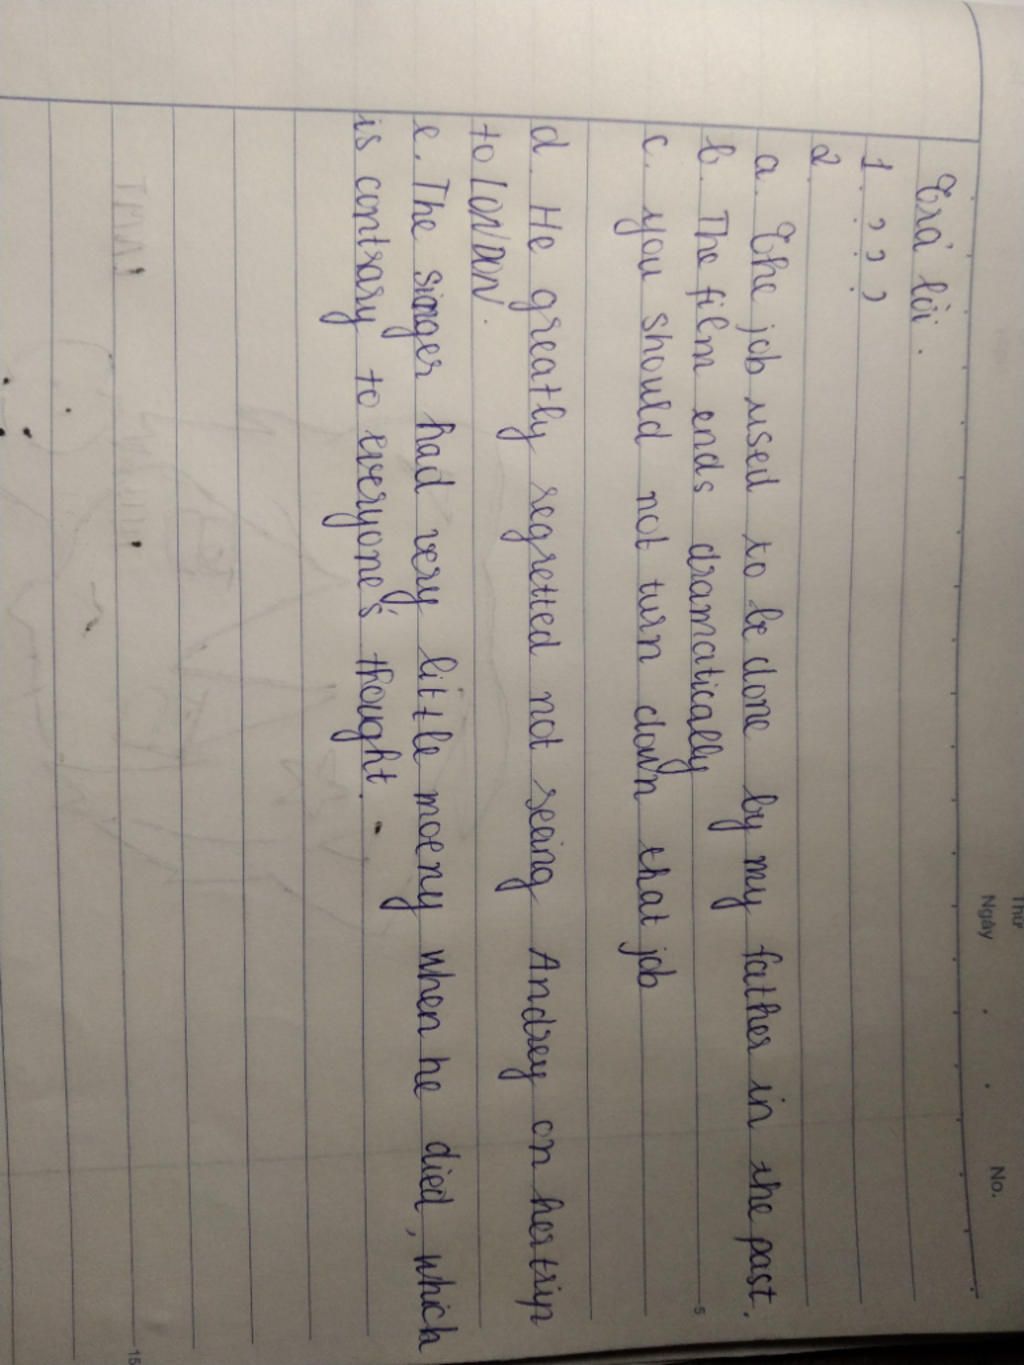 Thứ
Ngày
No.
Trả lời.
1. ? ? ?
2.
a. The job used to be done by my father in the past.
b. The film ends dramatically
c. you should not turn down that job
d. He greatly regretted not seeing Andrey on her trip
to lONDON.
e. The singer had very little moeny when he died, which
is contrary to everyone's thought.
5
15